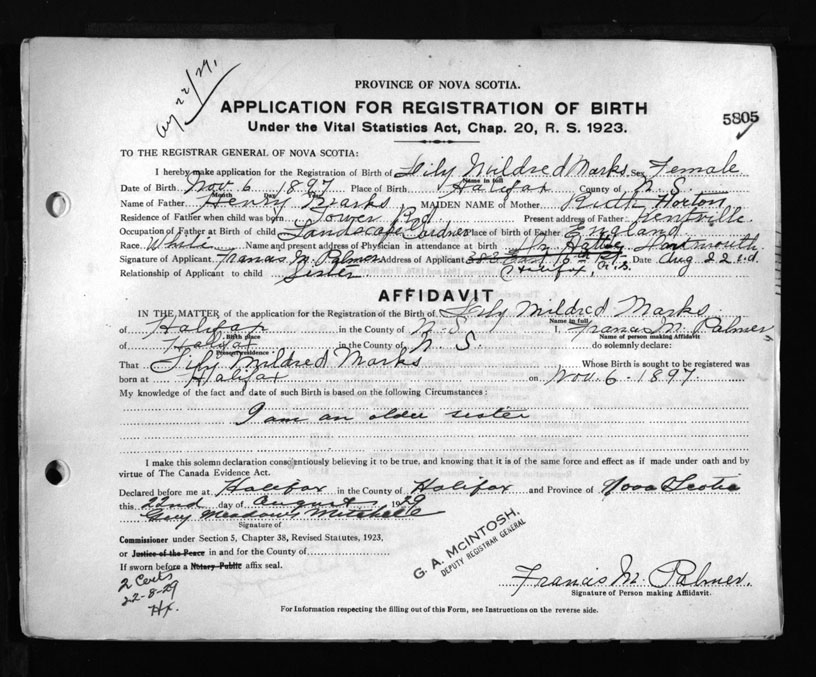 Aug 22/29.
PROVINCE OF NOVA SCOTIA.
APPLICATION FOR REGISTRATION OF BIRTH
5805
Under the Vital Statistics Act, Chap. 20, R. S. 1923.
TO THE REGISTRAR GENERAL OF NOVA SCOTIA:
I hereby make application for the Registration of Birth of Lily Mildred Marks Sex Female
Name in full
Date of Birth Nov. 6 1897 Place of Birth Halifax County of N. S.
Month Day Year
Name of Father Henry Marks MAIDEN NAME of Mother Ruth Horton
Residence of Father when child was born Tower Rd. Present address of Father Kentville
Occupation of Father at Birth of child Landscape Gardner Place of birth of Father England
Race White Name and present address of Physician in attendance at birth Dartmouth
Signature of Applicant Francis M. Palmer Address of Applicant 382 East 16th St. Date Aug 22nd
Relationship of Applicant to child Sister Halifax, N.S.
AFFIDAVIT
IN THE MATTER of the application for the Registration of the Birth of Lily Mildred Marks
Name in full
of Halifax in the County of N. S. I, Francis M. Palmer
Birth place Name of person making Affidavit
of Halifax in the County of N. S. do solemnly declare:
Present residence
That Lily Mildred Marks Whose Birth is sought to be registered was
born at Halifax on Nov. 6 - 1897.
My knowledge of the fact and date of such Birth is based on the following Circumstances:
I am an older sister
I make this solemn declaration conscientiously believing it to be true, and knowing that it is of the same force and effect as if made under oath and by
virtue of The Canada Evidence Act.
Declared before me at Halifax in the County of Halifax and Province of Nova Scotia
this 22nd day of August 1929
Guy Meadows Mitchell
Signature of
Commissioner under Section 5, Chapter 38, Revised Statutes, 1923,
or Justice of the Peace in and for the County of
If sworn before a Notary Public affix seal.
G. A. McINTOSH,
DEPUTY REGISTRAR GENERAL
2 Certs
22-8-29
Hx.
Francis M. Palmer.
Signature of Person making Affidavit.
For Information respecting the filling out of this Form, see Instructions on the reverse side.